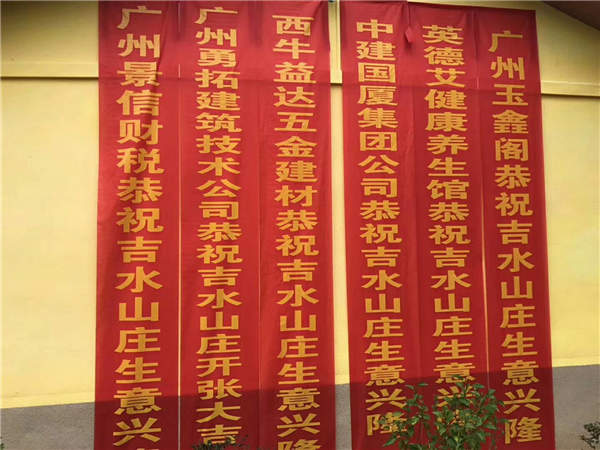 广州景信财税恭祝吉水山庄生意兴
广州勇拓建筑技术公司恭祝吉水山庄开张大吉
西牛益达五金建材恭祝吉水山庄生意兴隆
中建国厦集团公司恭祝吉水山庄生意兴隆
英德艾健康养生馆恭祝吉水山庄生意兴隆
广州玉鑫阁恭祝吉水山庄生意兴隆